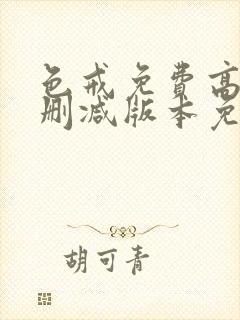 色戒免費高
删减版本免
胡可青